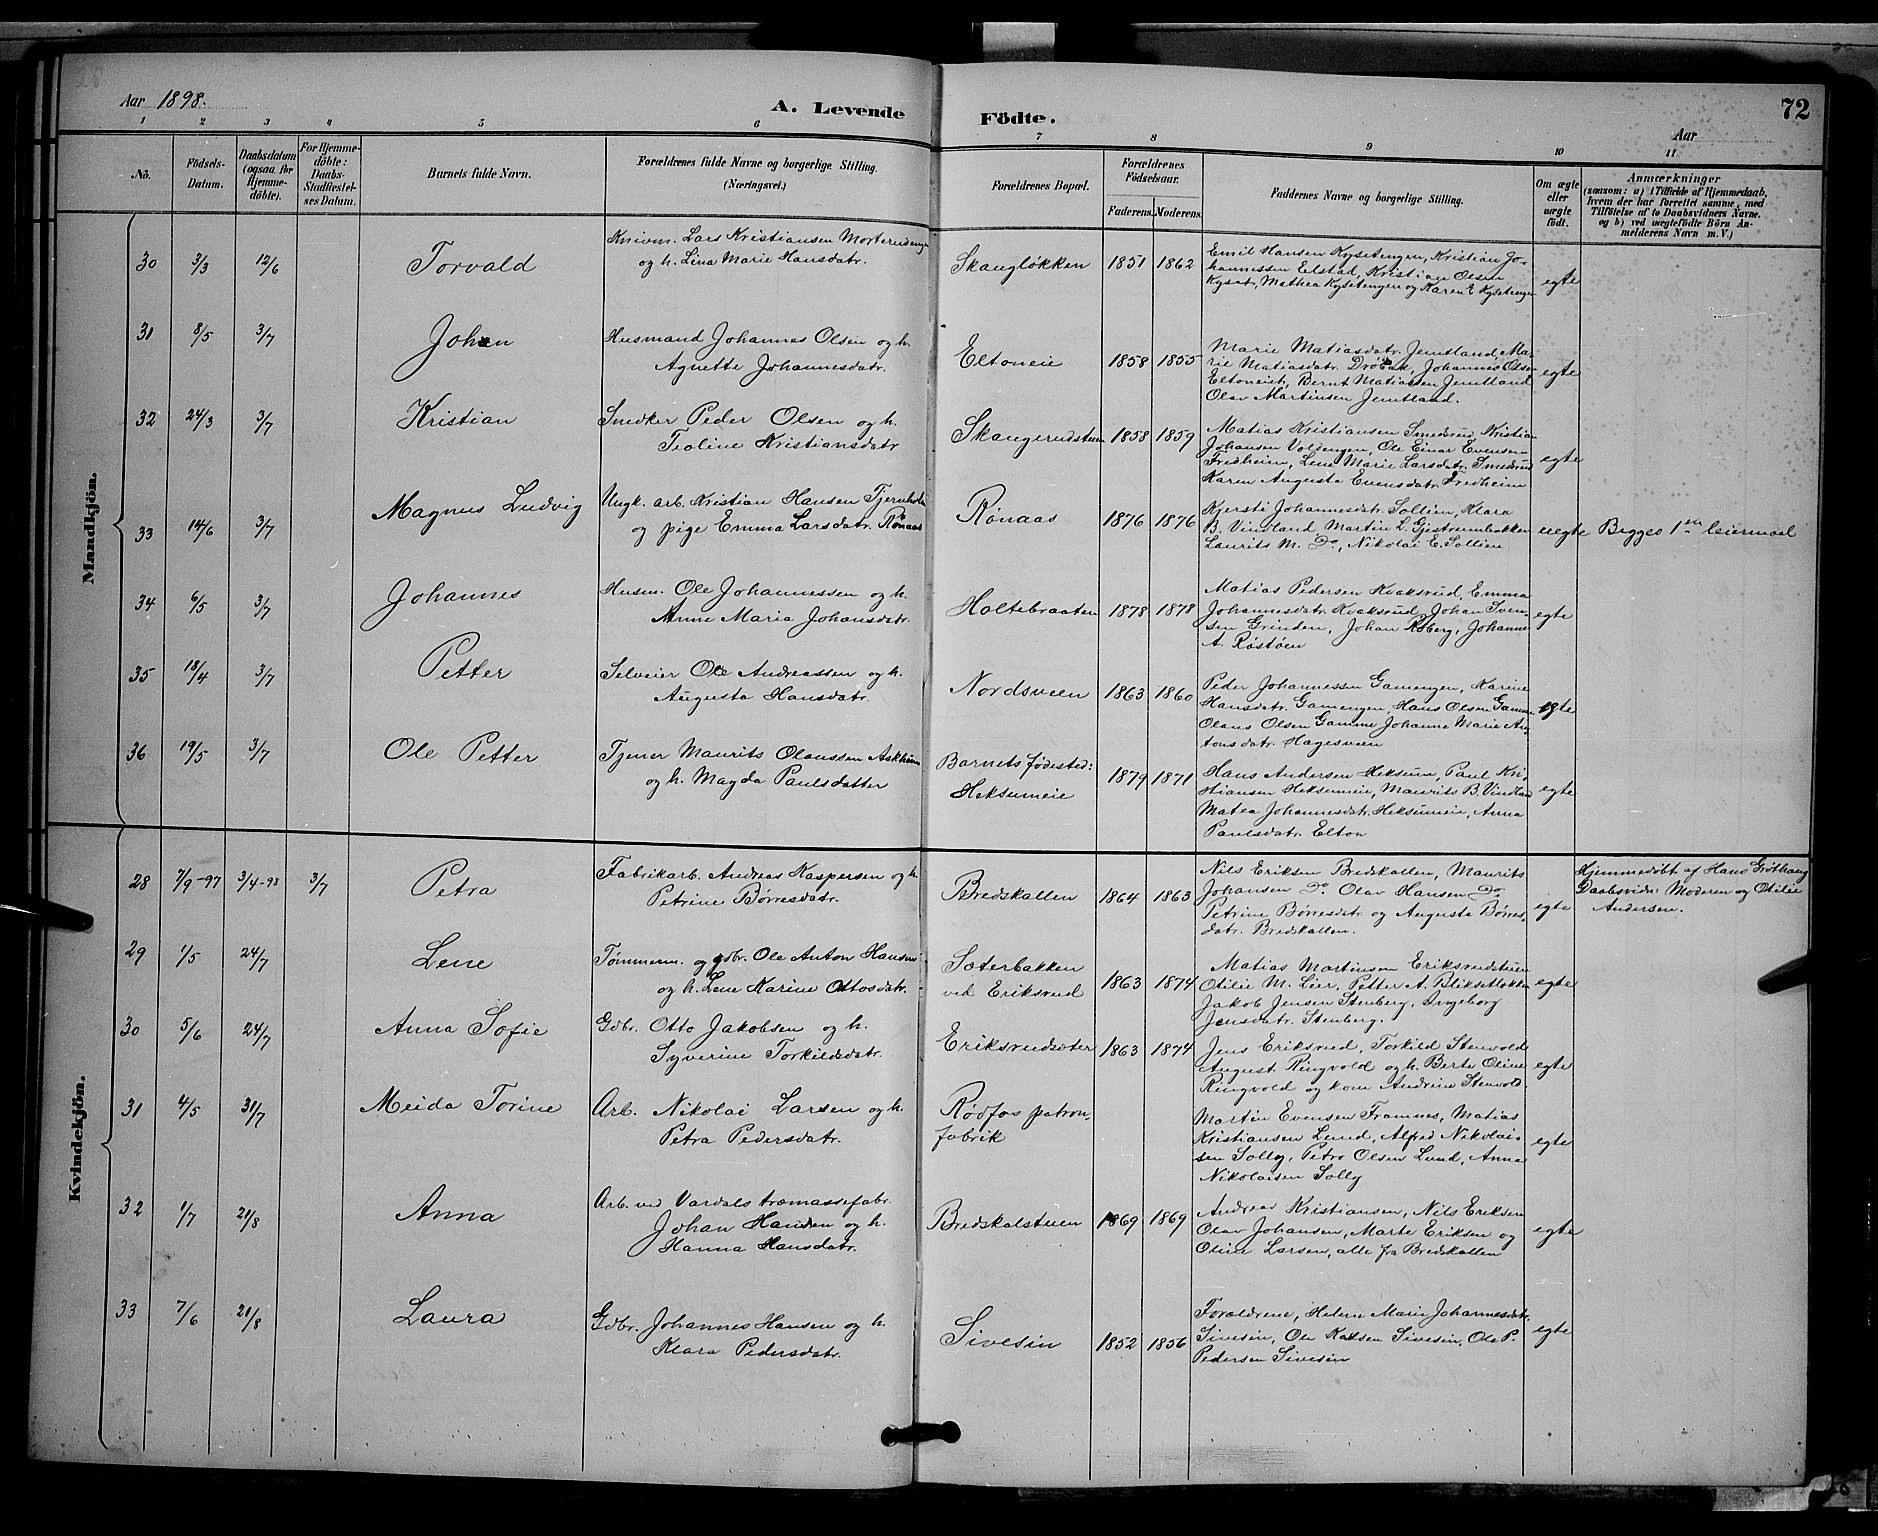 72
Aar 1898.
A. Levende Födte.
Aar
1 2 3 4 5 6 7 8 9 10 11
No.
Födsels-Datum.
Daabsdatum (ogsaa for Hjemmedöbte).
For Hjemmedöbte: Daabs-Stadfæstelses Datum.
Barnets fulde Navn.
Forældrenes fulde Navne og borgerlige Stilling. (Næringsvei.)
Forældrenes Bopæl.
Forældrenes Födselsaar.
Faderens. Moderens.
Faddernes Navne og borgerlige Stilling.
Om ægte eller uægte födt.
Anmærkninger
(saasom: a) i Tilfælde af Hjemmedaab, hvem der har forrettet samme, med Tilföielse af to Daabsvidners Navne. og b) ved uægtefödte Börn Anmelderens Navn m. V.)
Mandkjön.
30 3/3 12/6 Torvald
Knivm. Lars Kristiansen Morterudengen
og h. Lina Marie Hansdatr.
Skaugløkken 1851 1862
Emil Hansen Kysetengen, Kristian Jo-
hannessen Eelstad, Kristian Olsen
Kyset, Mathea Kysetengen og Karen E. Kysetengen
egte
31 8/5 3/7 Johan
Husmand Johannes Olsen og h.
Agnette Johannesdatr.
Eltoneie 1858 1855
Marie Matiasdatr. Jemtland, Ma-
rie Matiasdatr. Drøbak, Johannes Olsen
Eltoneiet, Bernt Matiassen Jemtland
Olav Martinsen Jemtland.
egte
32 24/3 3/7 Kristian
Snedker Peder Olsen og h.
Tioline Kristiansdatr
Skaugerudstuen 1858 1859
Matias Kristiansen Smedsrud, Kristian
Johansen Volsengen, Ole Einar Evensen
Fredheim, Lene Marie Larsdatr. Smedsrud
Karen Augusta Evensdatr. Fredheim
egte
33 14/6 3/7 Magnus Ludvig
Ungk. arb. Kristian Hansen Tjernholm
og pige Emma Larsdatr. Rønaas
Rønaas 1876 1876
Kjersti Johannesdatr. Sollien, Klara
B. Vindland, Martin L. Gjestrumbakken
Laurits M. Do., Nikolai E. Sollien
uegte Begges 1ste leiermaal
34 6/5 3/7 Johannes
Husm. Ole Johannessen og h.
Anne Maria Johansdatr.
Holtebraaten 1878 1878
Matias Pedersen Kvaksrud, Emma
Johannesdatr. Kvaksrud, Johan Iven-
sen Grinden, Johan Roberg, Johanne
A. Røstøen
egte
35 18/4 3/7 Petter
Selveier Ole Andreassen og h.
Augusta Hansdatr.
Nordsveen 1863 1860
Peder Johannessen Gamengen, Karine
Hansdatr. Gamengen, Hans Olsen Gamme
Olaus Olsen Gamme, Johanne Marie An-
tonsdatr. Hagesveen
egte
36 19/5 3/7 Ole Petter
Tjener Maurits Olaussen Askheim
og h. Magda Paulsdatter
Barnets fødested:
Heksumeie 1879 1871
Hans Andersen Heksum, Paul Kri-
stiansen Heksumeie, Maurits B. Vindland
Matea Johannesdatr. Heksumeie, Anna
Paulsdatr. Elton
egte
Kvindekjön.
28 7/9-97 3/4-98 3/7 Petra
Fabrikarb. Andreas Kaspersen og h.
Petrine Børresdatr.
Bredskallen 1864 1863
Nils Eriksen Bredskallen, Maurits
Johansen Do. Olav Hansen Do
Petrine Børresdatr og Augusta Børres-
datr. Bredskallen.
egte
Hjemmedøbt af Hans Grøthaug
Daabsvidn: Moderen og Otilie
Andersen.
29 1/5 24/7 Lene
Tømmerm. og gdbr. Ole Anton Hansen
og h. Lene Karine Ottosdatr.
Sæterbakken
ved Eriksrud 1863 1874
Matias Martinsen Eriksrudstuen
Otilie M. Lier, Petter A. Blikset­løkken
Jakob Jensen Stenberg, Ingeborg
Jensdatr. Stenberg.
egte
30 5/6 24/7 Anna Sofie
Gdbr. Otto Jakobsen og h.
Syverine Torkildsdatr.
Eriksrudsæter 1863 1874
Jens Eriksrud, Torkild Stenvold
August Ringvold og h. Berte Oline
Ringvold og kone Andrine Stenvold
egte
31 4/5 31/7 Meida Torine
Arb. Nikolai Larsen og h.
Petra Pedersdatr.
Rødfos patron-
fabrik
Martin Evensen Framnes, Matias
Kristiansen Lund, Alfred Nikolai-
sen Solly, Petra Olsen Lund, Anna
Nikolaisen Solly
egte
32 1/7 21/8 Anna
Arb. ved Vardals træmassefabr.
Johan Hansen og h.
Hanna Hansdatr.
Bredskalstuen 1869 1869
Andreas Kristiansen, Nils Eriksen
Olav Johansen, Marte Eriksen og
Oline Larsen, alle fra Bredskallen
egte
33 7/6 21/8 Laura
Gdbr. Johannes Hansen og h.
Klara Pedersdatr.
Sivesin 1852 1856
Forældrene, Helene Marie Johannesdatr.
Sivesin, Ole Karlsen Sivesin, Ole P.
Pedersen Sivesin
egte